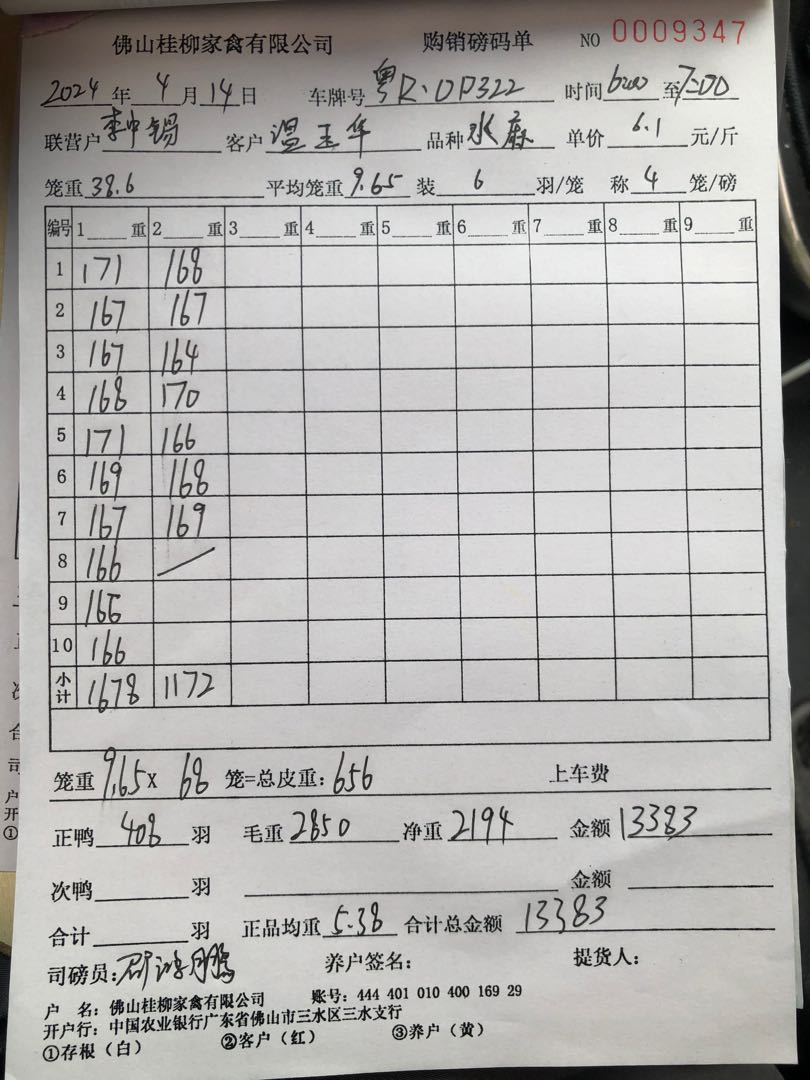 佛山桂柳家禽有限公司 购销磅码单 NO 0009347
2024年4月14日 车牌号粤R·0P322 时间6:00至7:00
联营户李中锡 客户温玉华 品种水麻 单价6.1元/斤
笼重38.6 平均笼重9.65 装6羽/笼 称4笼/磅
编号 1 重 2 重 3 重 4 重 5 重 6 重 7 重 8 重 9 重
1 171 168
2 167 167
3 167 164
4 168 170
5 171 166
6 169 168
7 167 169
8 166
9 166
10 166
小计 1678 1172
笼重9.65× 68 笼=总皮重:656 上车费
正鸭408羽 毛重2850 净重2194 金额13383
次鸭 羽 金额
合计 羽 正品均重5.38 合计总金额13383
司磅员: 养户签名: 提货人:
户 名:佛山桂柳家禽有限公司 账号:444 401 010 400 169 29
开户行:中国农业银行广东省佛山市三水区三水支行
①存根(白) ②客户(红) ③养户(黄)